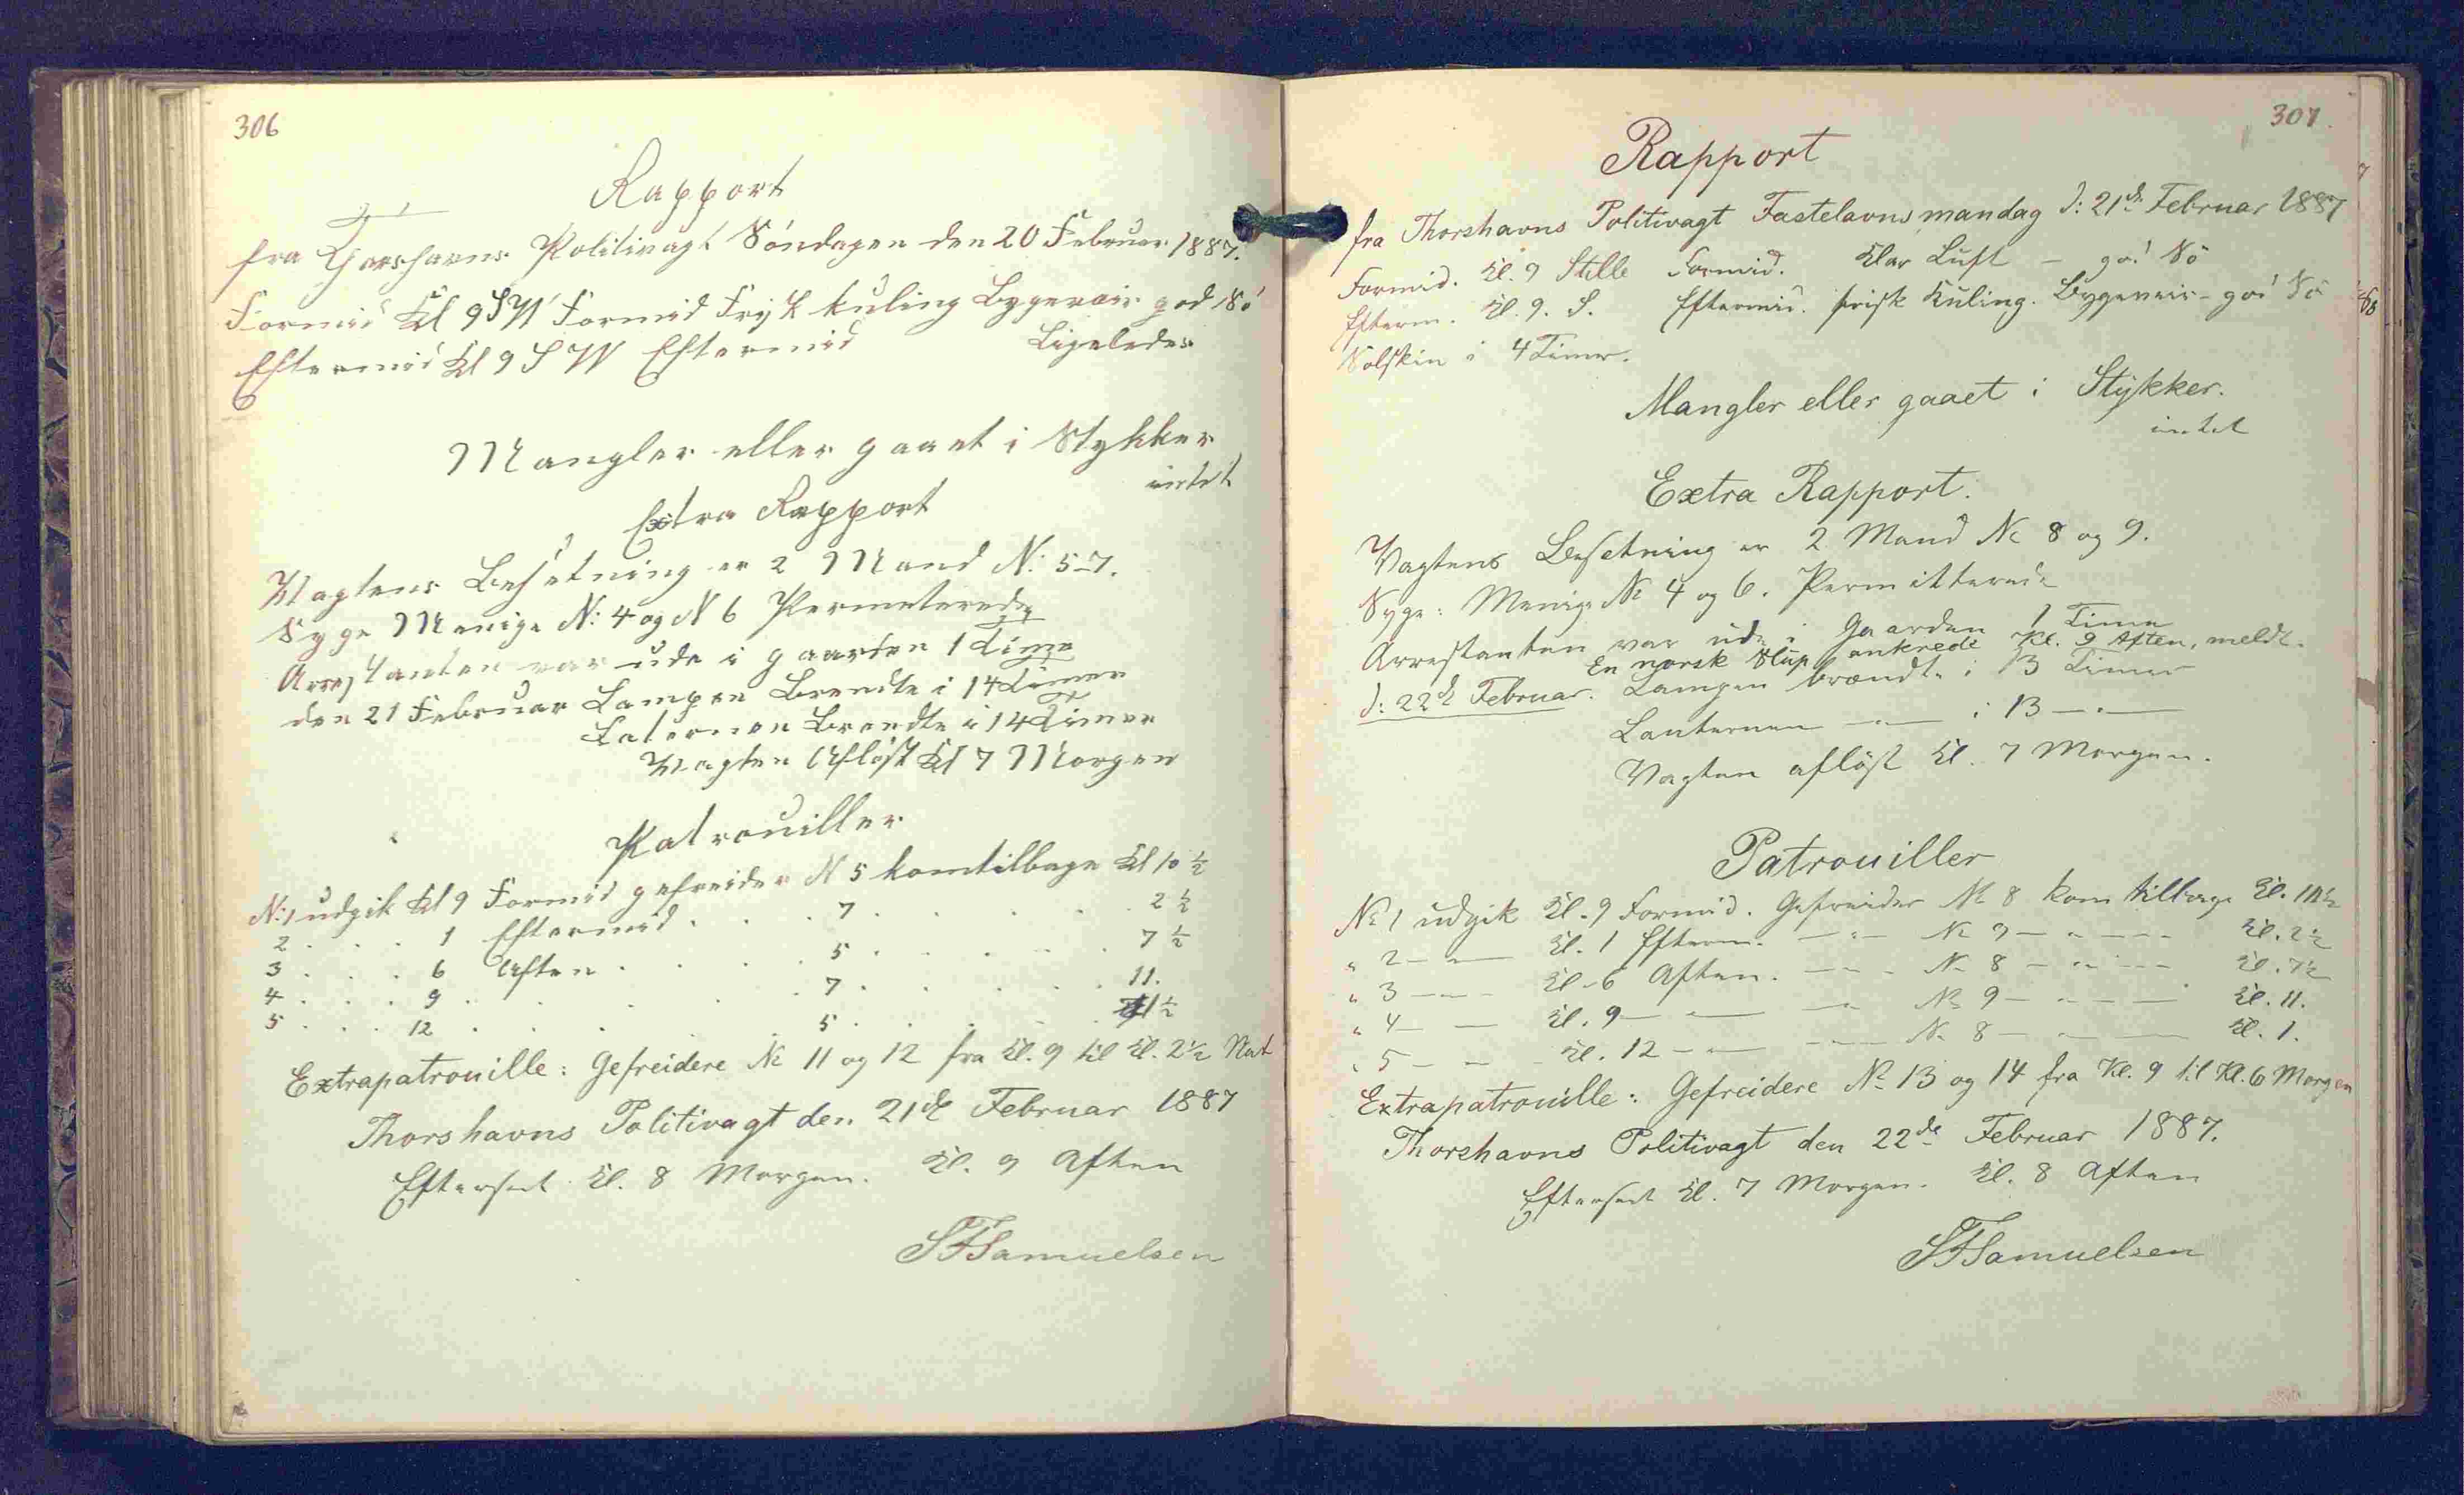 306
Rapport
fra Thorshavns Politivagt Söndagen den 20 Februar 1887.
Formid Kl 9 SW Formid Frisk kuling Bygeveir god Sö
Eftermid Kl 9 S W Eftermid Ligeledes
Mangler eller gaaet i Stykker
intet
Extra Rapport
Vagtens Besetning er 2 Mand N: 5-7.
Syge Menige N: 4 og N 6 Permeterede
Arrestanten var ude i gaarden 1 Time
den 21 Februar Lampen Brendte i 14 Timer
Laternen Brendte i 14 Timer
Vagten Aflöst Kl 7 Morgen
Patrouiller
N: 1 udgik Kl 9 Formid gefreider N 5 kom tilbage Kl 10 ½
2 . . . 1 Eftermid . . . 7 . . . . 2 ½
3 . . . 6 Aften . . . . 5 . . . . 7 ½
4 . . . 9 . . . . . 7 . . . . . 11.
5 . . . 12 . . . . 5 . . . . 1 ½
Extrapatrouille: Gefreidere No 11 og 12 fra Kl. 9 til Kl. 2½ Nat
Thorshavns Politivagt den 21de Februar 1887
Efterseet Kl. 8 Morgen. Kl. 9 Aften
SFSamuelsen
307.
Rapport
fra Thorshavns Politivagt Fastelavnsmandag d: 21de Februar 1887
Formid. Kl. 9 Stille Formid. Klar Luft – god Sö
Efterm. Kl. 9. S. Eftermid. frisk Kuling. Bygeveir – god Sö
Solskin i 4 Timer.
Mangler eller gaaet i Stykker.
intet
Extra Rapport.
Vagtens Besetning er 2 Mand No 8 og 9.
Syge: Menige No 4 og 6. Permitterede
Arrestanten var ude i Gaarden 1 Time
En norsk Slup ankrede Kl. 9 Aften, meldt.
d: 22de Februar. Lampen brændte i 13 Timer
Lanternen –"– i 13 –"–
Vagten aflöst Kl. 7 Morgen.
Patrouiller
No 1 udgik Kl. 9 Formid. Gefreider No 8 kom tilbage Kl. 10½
" 2 –"– Kl. 1 Efterm. –"– No 9 –"– Kl. 2½
" 3 –"– Kl. 6 Aften. –"– No 8 –"– Kl. 7½
" 4 – – Kl. 9 –"– –"– No 9 –"– Kl. 11.
" 5 – – Kl. 12 –"– –"– No 8 –"– Kl. 1.
Extrapatrouille: Gefreidere No 13 og 14 fra Kl. 9 til Kl. 6 Morgen
Thorshavns Politivagt den 22de Februar 1887.
Efterseet Kl. 7 Morgen. Kl. 8 Aften
SFSamuelsen